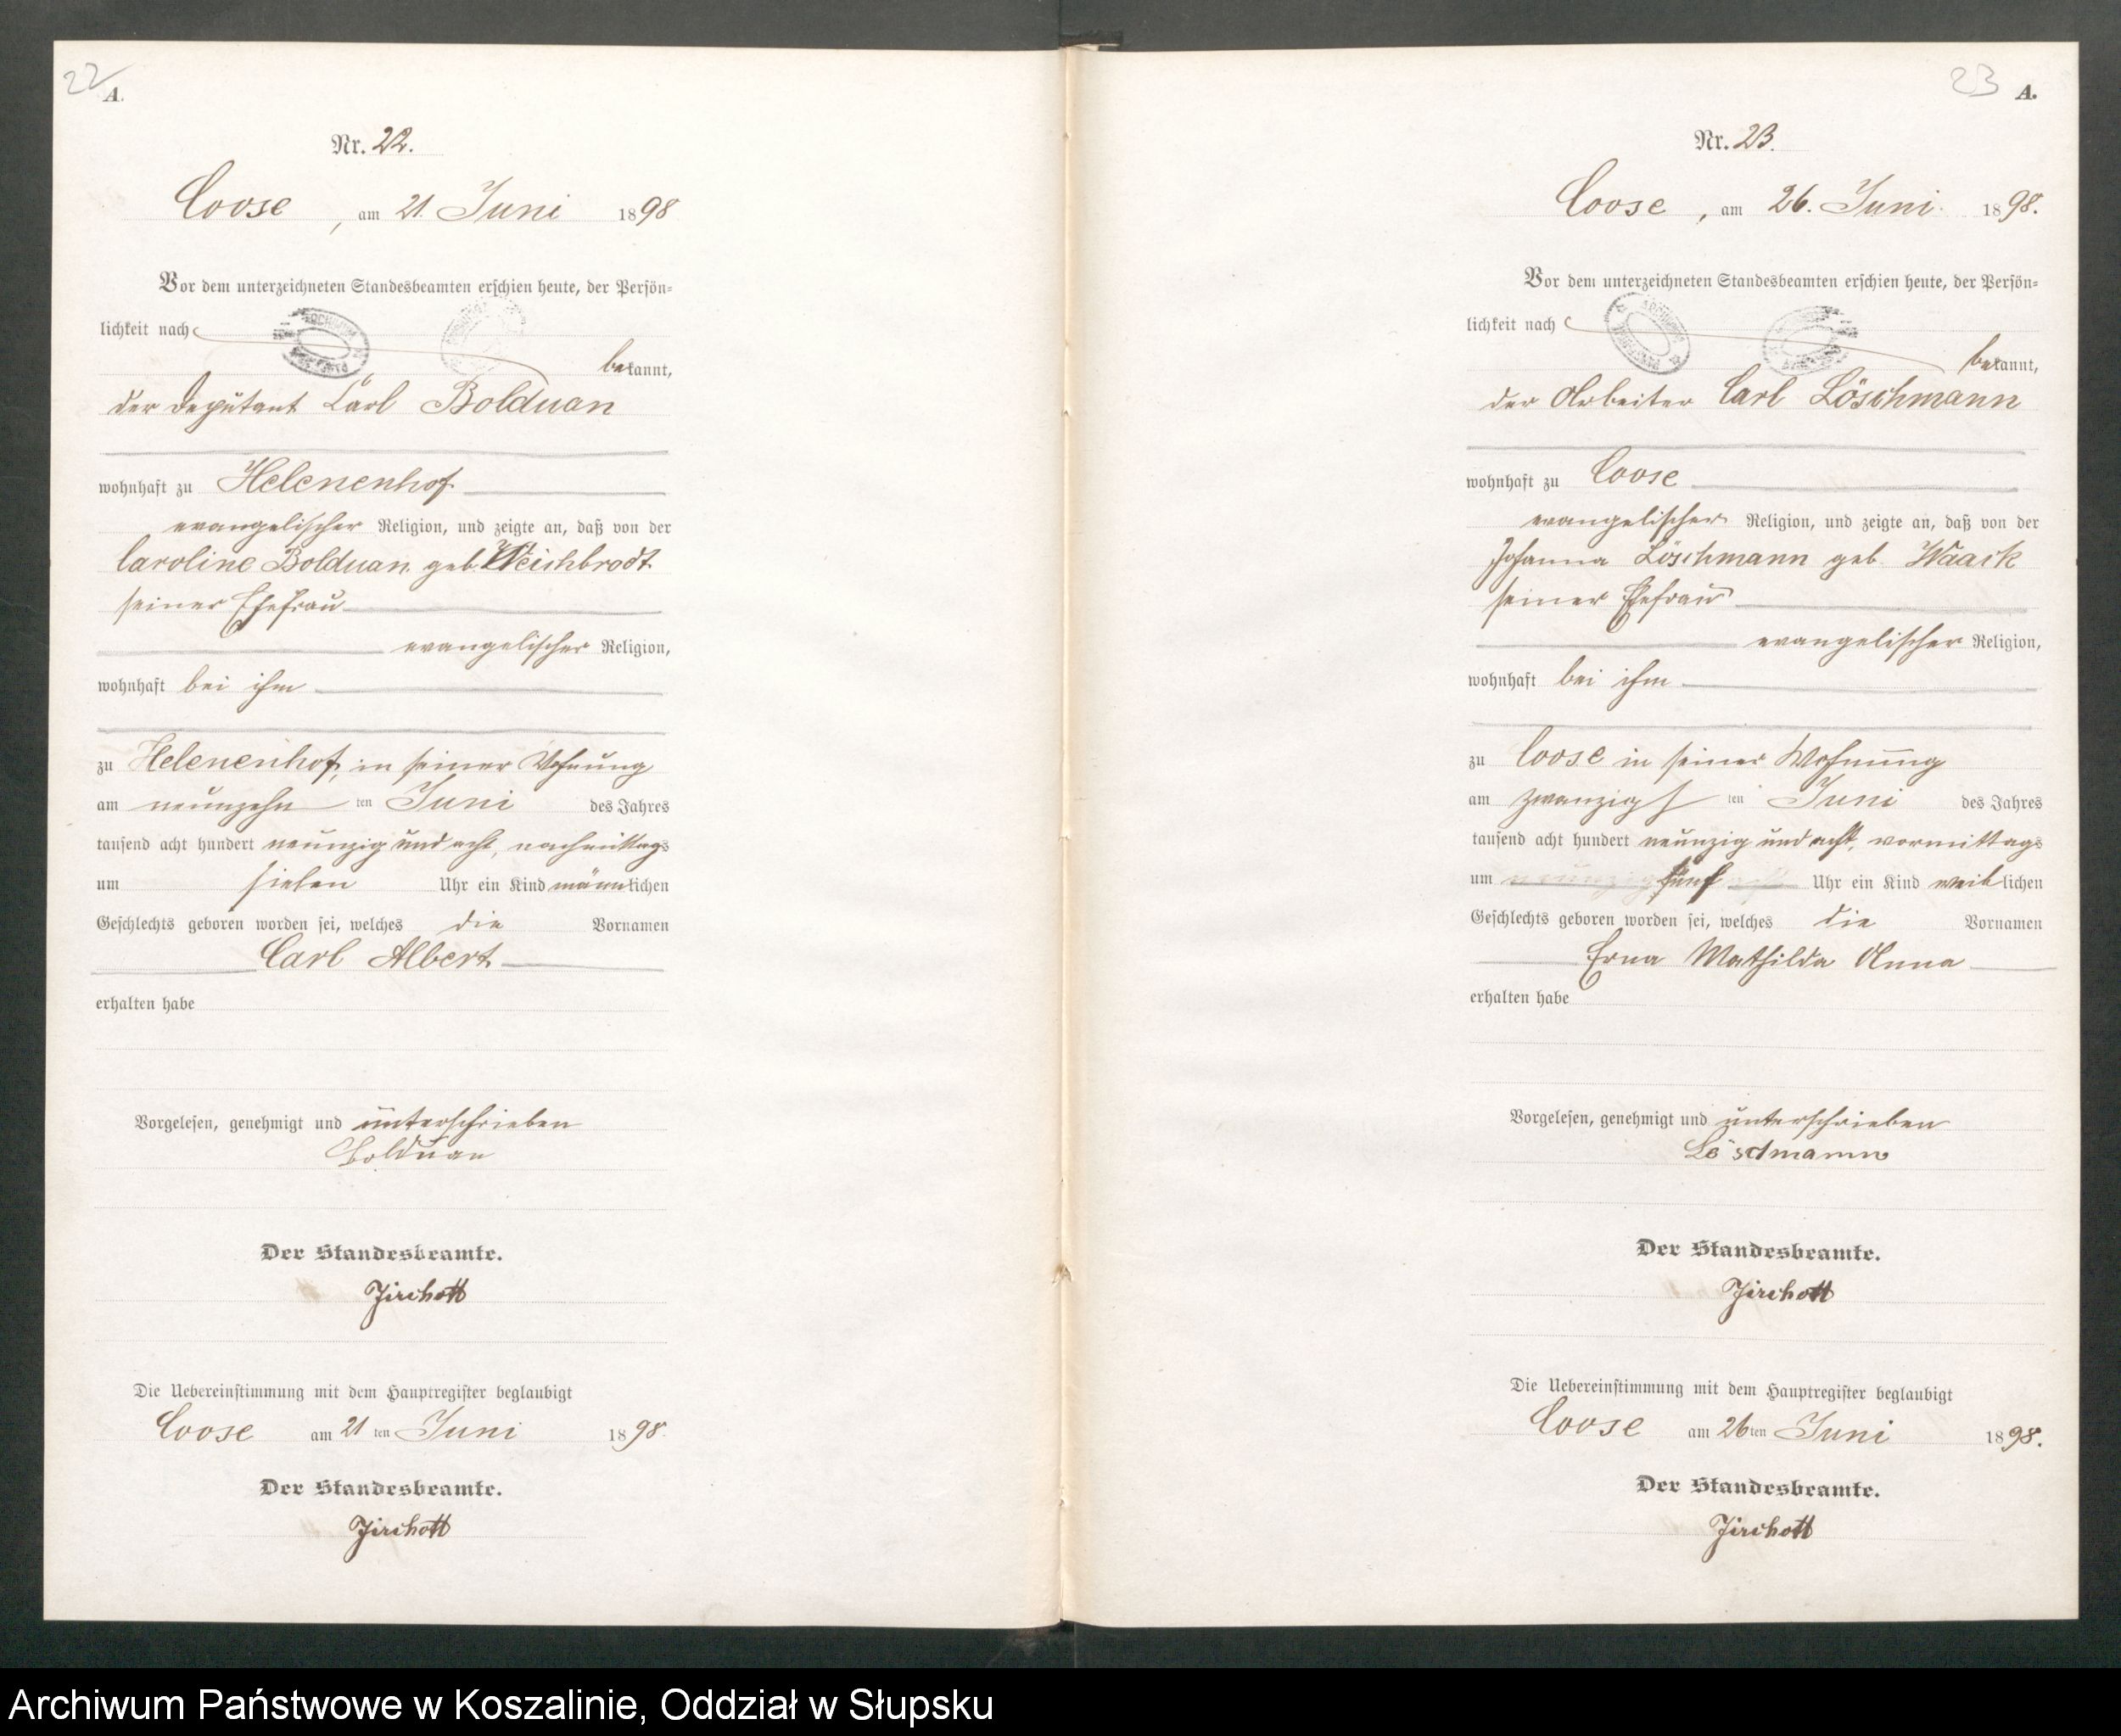 22
A.
Nr. 22.
Coose, am 21. Juni 1898
Vor dem unterzeichneten Standesbeamten erschien heute, der Persön=
lichkeit nach
bekannt,
der Deputant Carl Bolduan
wohnhaft zu Helenenhof
evangelischer Religion, und zeigte an, daß von der
Caroline Bolduan geb. Weichbrodt
seiner Ehefrau
evangelischer Religion,
wohnhaft bei ihm
zu Helenenhof, in seiner Wohnung
am neunzehn ten Juni des Jahres
tausend acht hundert neunzig und acht, nachmittags
um sieben Uhr ein Kind männlichen
Geschlechts geboren worden sei, welches die Vornamen
Carl Albert
erhalten habe
Vorgelesen, genehmigt und unterschrieben
Bolduan
Der Standesbeamte.
Jirchott
Die Uebereinstimmung mit dem Hauptregister beglaubigt
Coose am 21 ten Juni 1898.
Der Standesbeamte.
Jirchott
23
A.
Nr. 23.
Coose, am 26. Juni 1898.
Vor dem unterzeichneten Standesbeamten erschien heute, der Persön=
lichkeit nach
bekannt,
der Arbeiter Carl Löschmann
wohnhaft zu Coose
evangelischer Religion, und zeigte an, daß von der
Johanna Löschmann geb. Waack
seiner Ehefrau
evangelischer Religion,
wohnhaft bei ihm
zu Coose in seiner Wohnung
am zwanzigs ten Juni des Jahres
tausend acht hundert neunzig und acht, vormittags
um fünf Uhr ein Kind weiblichen
Geschlechts geboren worden sei, welches die Vornamen
Erna Mathilda Anna
erhalten habe
Vorgelesen, genehmigt und unterschrieben
Löschmann
Der Standesbeamte.
Jirchott
Die Uebereinstimmung mit dem Hauptregister beglaubigt
Coose am 26ten Juni 1898.
Der Standesbeamte.
Jirchott
Archiwum Państwowe w Koszalinie, Oddział w Słupsku